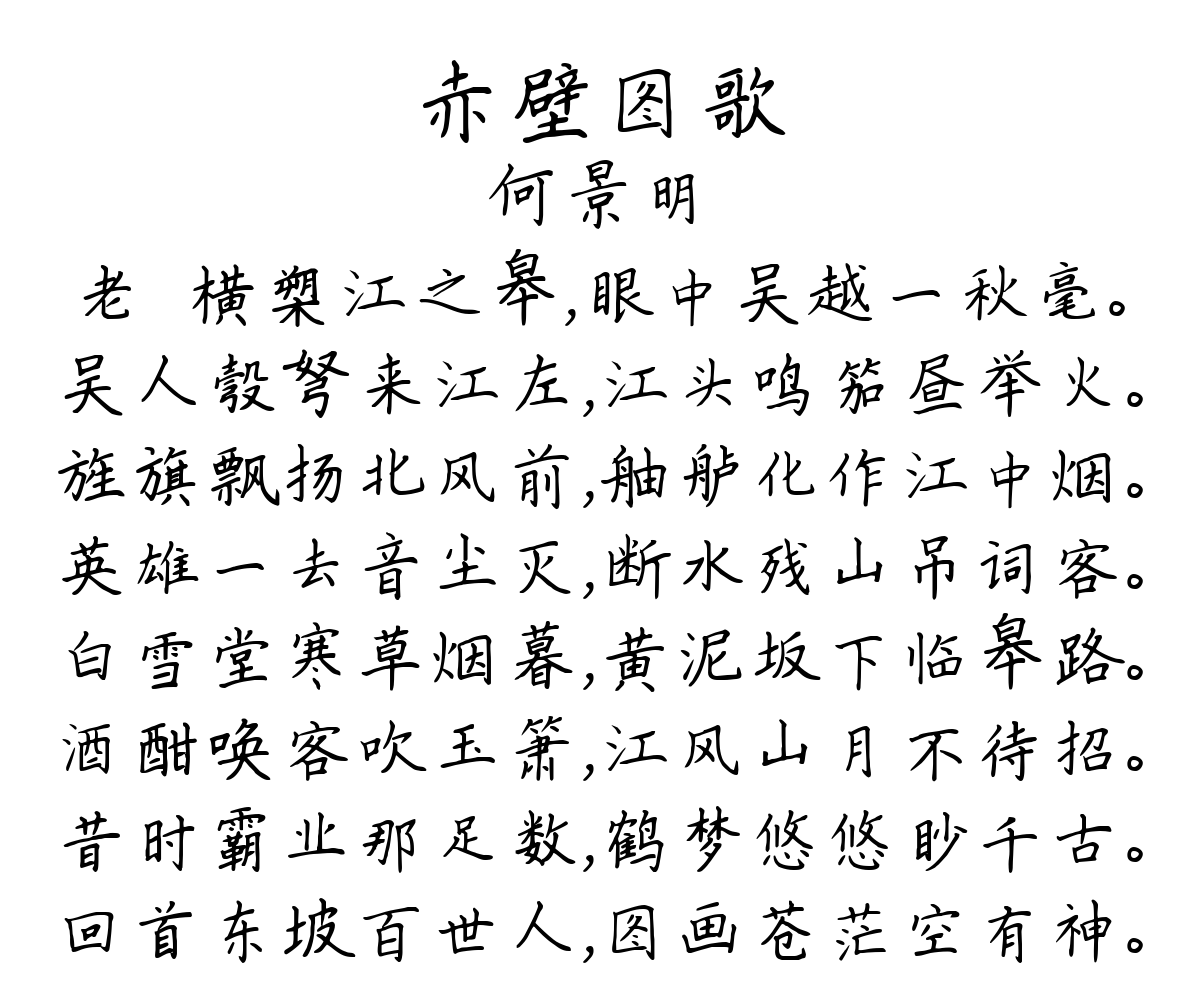 赤壁图歌
何景明
老 横槊江之皋,眼中吴越一秋毫。
吴人彀弩来江左,江头鸣笳昼举火。
旌旗飘扬北风前,舳舻化作江中烟。
英雄一去音尘灭,断水残山吊词客。
白雪堂寒草烟暮,黄泥坂下临皋路。
酒酣唤客吹玉箫,江风山月不待招。
昔时霸业那足数,鹤梦悠悠眇千古。
回首东坡百世人,图画苍茫空有神。